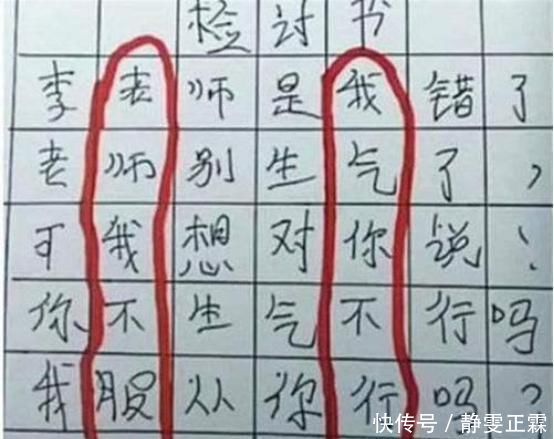 检讨书
李老师是我错了
老师别生气了,
可我想对你说!
你不生气不行吗
我服从你行吗?
快传号/静雯正霖